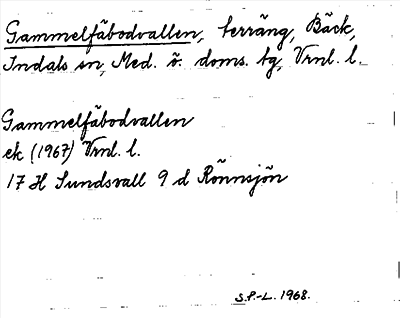 Gammelfäbodvallen, terräng, Bäck,
Indals sn, Med. ö. doms. tg, Vrnl. l.
Gammelfäbodvallen
ek (1967) Vrnl. l.
17 H Sundsvall 9 d Rönnsjön
S.P.-L. 1968.